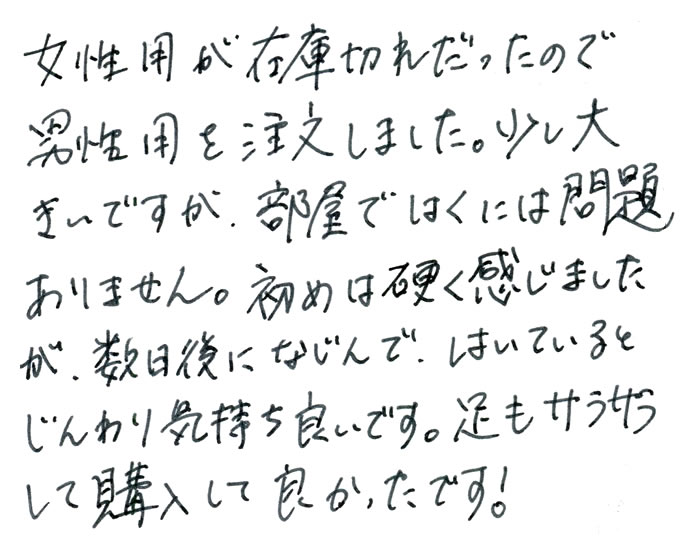 女性用が在庫切れだったので
男性用を注文しました。少し大
きいですが、部屋ではくには問題
ありません。初めは硬く感じました
が、数日後になじんで、はいていると
じんわり気持ち良いです。足もサラサラ
して購入して良かったです!